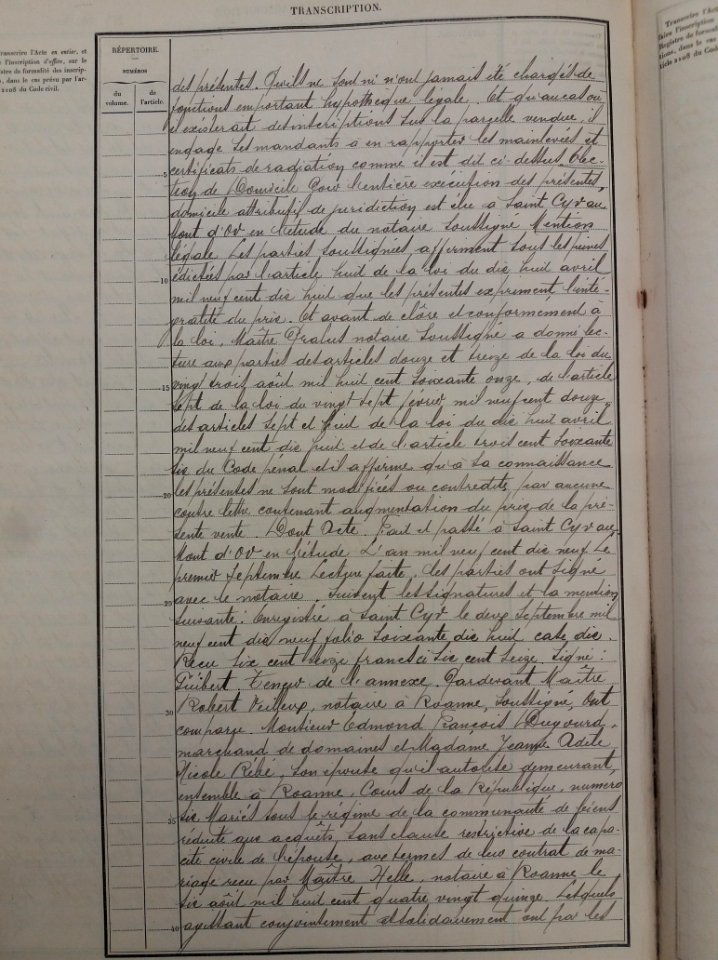 TRANSCRIPTION.
Transcrire l'Acte en entier, et
l'inscription d'office, sur le
registre de formalité des inscrip-
tions, dans le cas prévu par l'ar-
2108 du Code civil.
RÉPERTOIRE.
NUMÉROS
du volume.
de l'article.
des présentes. Qu'ils ne sont ni n'ont jamais été chargés de
fonctions emportant hypothèque légale. Et qu'au cas où
il existerait des inscriptions sur la parcelle vendue, il
engage ses mandants à en rapporter les mainlevées et
certificats de radiation comme il est dit ci-dessus. Elec-
5
tion de Domicile Pour l'entière exécution des présentes,
domicile attributif de juridiction est élu à Saint Cyr au
Mont d'Or en l'étude du notaire soussigné Mention
légale Les parties soussignées affirment sous les peines
édictées par l'article huit de la loi du dix huit avril
10
mil neuf cent dix huit que les présentes expriment l'inté-
gralité du prix. Et avant de clôre et conformément à
la loi, Maître Pralus notaire soussigné a donné lec-
ture aux parties des articles douze et treize de la loi du
vingt trois août mil huit cent soixante onze, de l'article
15
sept de la loi du vingt sept février mil neuf cent douze,
des articles sept et huit de la loi du dix huit avril
mil neuf cent dix huit et de l'article trois cent soixante
six du Code pénal et il affirme qu'à sa connaissance
les présentes ne sont modifiées ou contredites par aucune
20
contre lettre contenant augmentation du prix de la pré-
sente vente. Dont Acte. Fait et passé à Saint Cyr au
Mont d'Or en l'étude. L'an mil neuf cent dix neuf Le
premier Septembre Lecture faite, les parties ont signé
avec le notaire. Suivent les signatures et la mention
25
suivante. Enregistré à Saint Cyr le deux Septembre mil
neuf cent dix neuf folio soixante dix huit case dix.
Reçu six cent seize francs ci six cent seize. Signé:
Guibert. Teneur de l'annexe. Pardevant Maître
Robert Veilleux, notaire à Roanne, soussigné, Ont
30
comparu. Monsieur Edmond François Dugourd,
marchand de domaines et Madame Jeanne Adèle
Nicole Rébé, son épouse qu'il autorise demeurant,
ensemble à Roanne, Cours de la République, numéro
six. Mariés sous le régime de la communauté de biens
35
réduite aux acquêts, sans clause restrictive de la capa-
cité civile de l'épouse, aux termes de leur contrat de ma-
riage reçu par Maître Helle, notaire à Roanne le
six août mil huit cent quatre vingt quinze. Lesquels
40
agissant conjointement et solidairement ont par les
Transcrire l'Acte